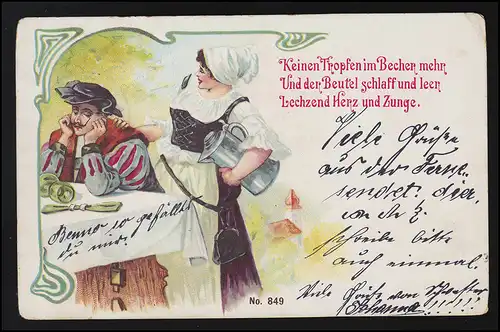 Keinen Tropfen im Becher mehr
Und der Beutel schlaff und leer
Lechzend Herz und Zunge.
Viele Grüße
aus der Ferne
sendet dir,
schreibe bitte
auch einmal.
Viele Grüße von Schwester
Johanna!!!!!!
Benno so gefällst
du mir.
No. 849